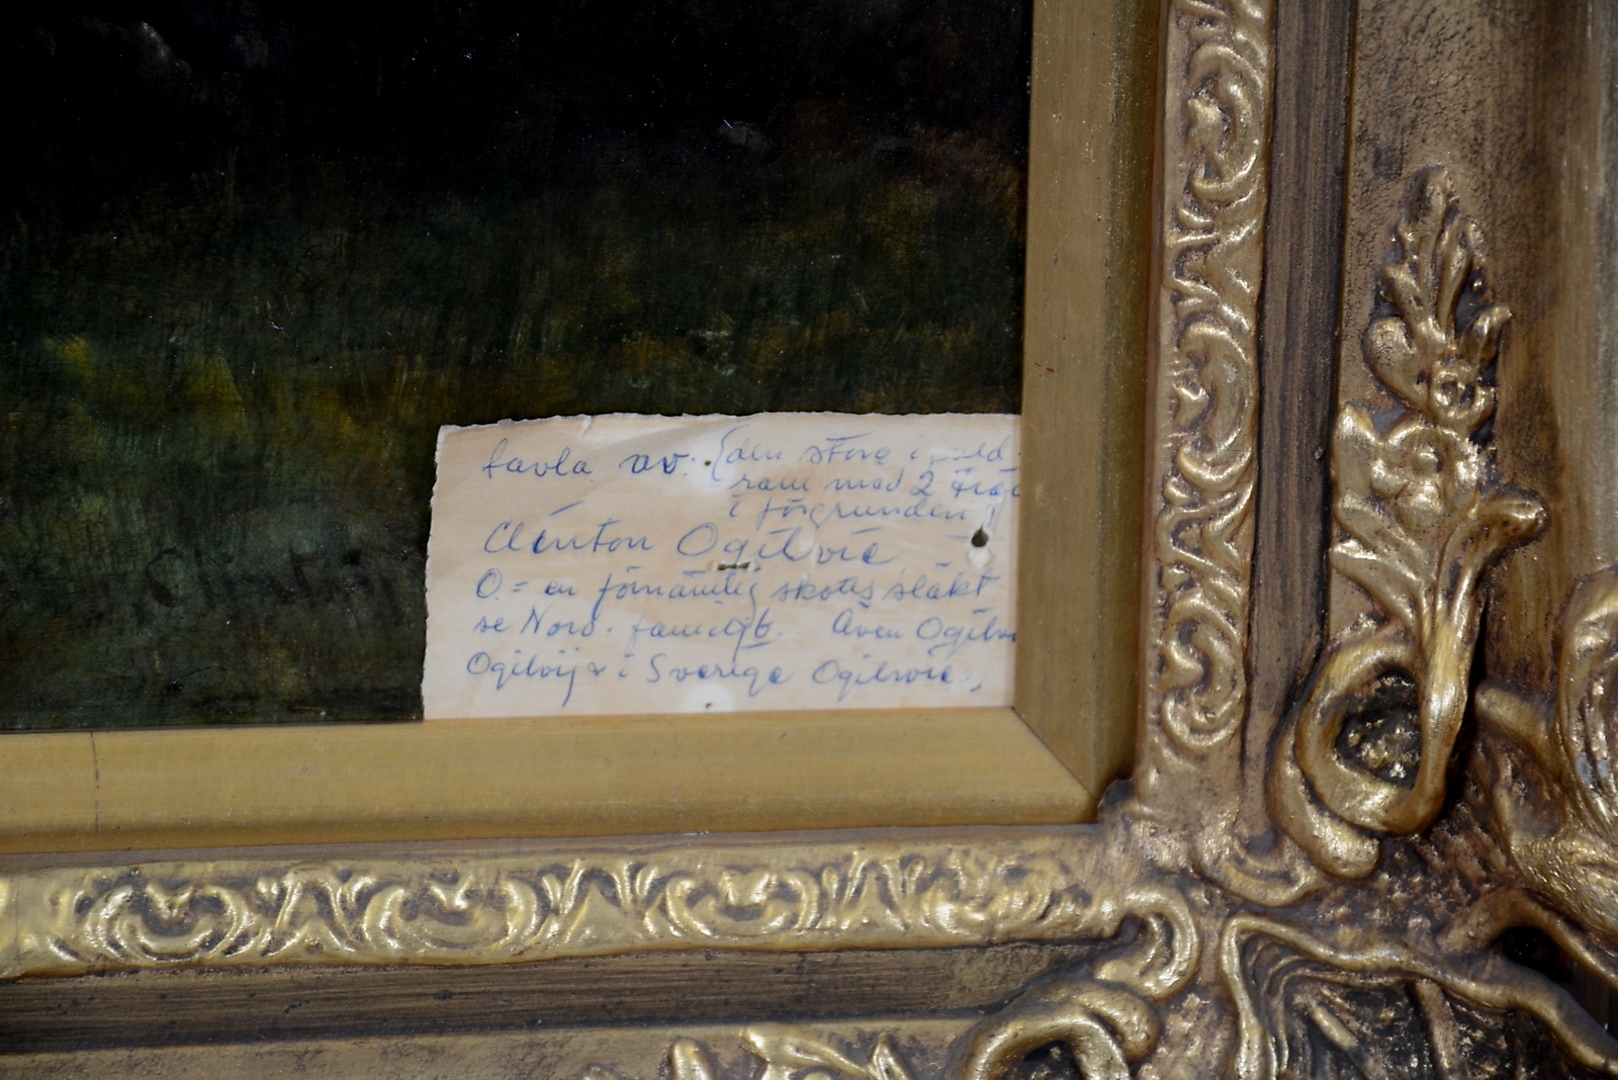 tavla av. (den stora i guld
ram med 2 träd
i förgrunden)
Clinton Ogilvie
O = en förnämlig skotts släkt
se Nord. familjb. Även Ogilvi
Ogilvijr i Sverige Ogilvie.,
Clinton